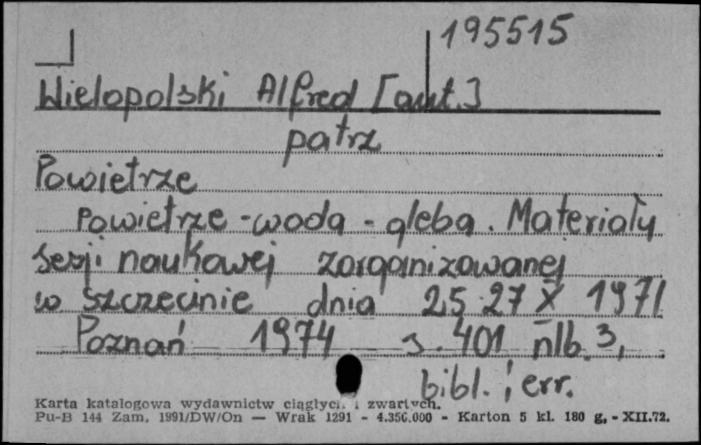 195515
Wielopolski Alfred [aut.]
patrz
Powietrze
Powietrze - woda - gleba. Materiały
sesji naukowej zorganizowanej
w Szczecinie dnia 25-27 X 1971
Poznań 1974 s. 401 nlb. 3,
bibl.; err.
Karta katalogowa wydawnictw ciągłych i zwartych.
Pu-B 144 Zam. 1991/DW/On — Wrak 1291 - 4.350.000 - Karton 5 kl. 180 g. - XII.72.